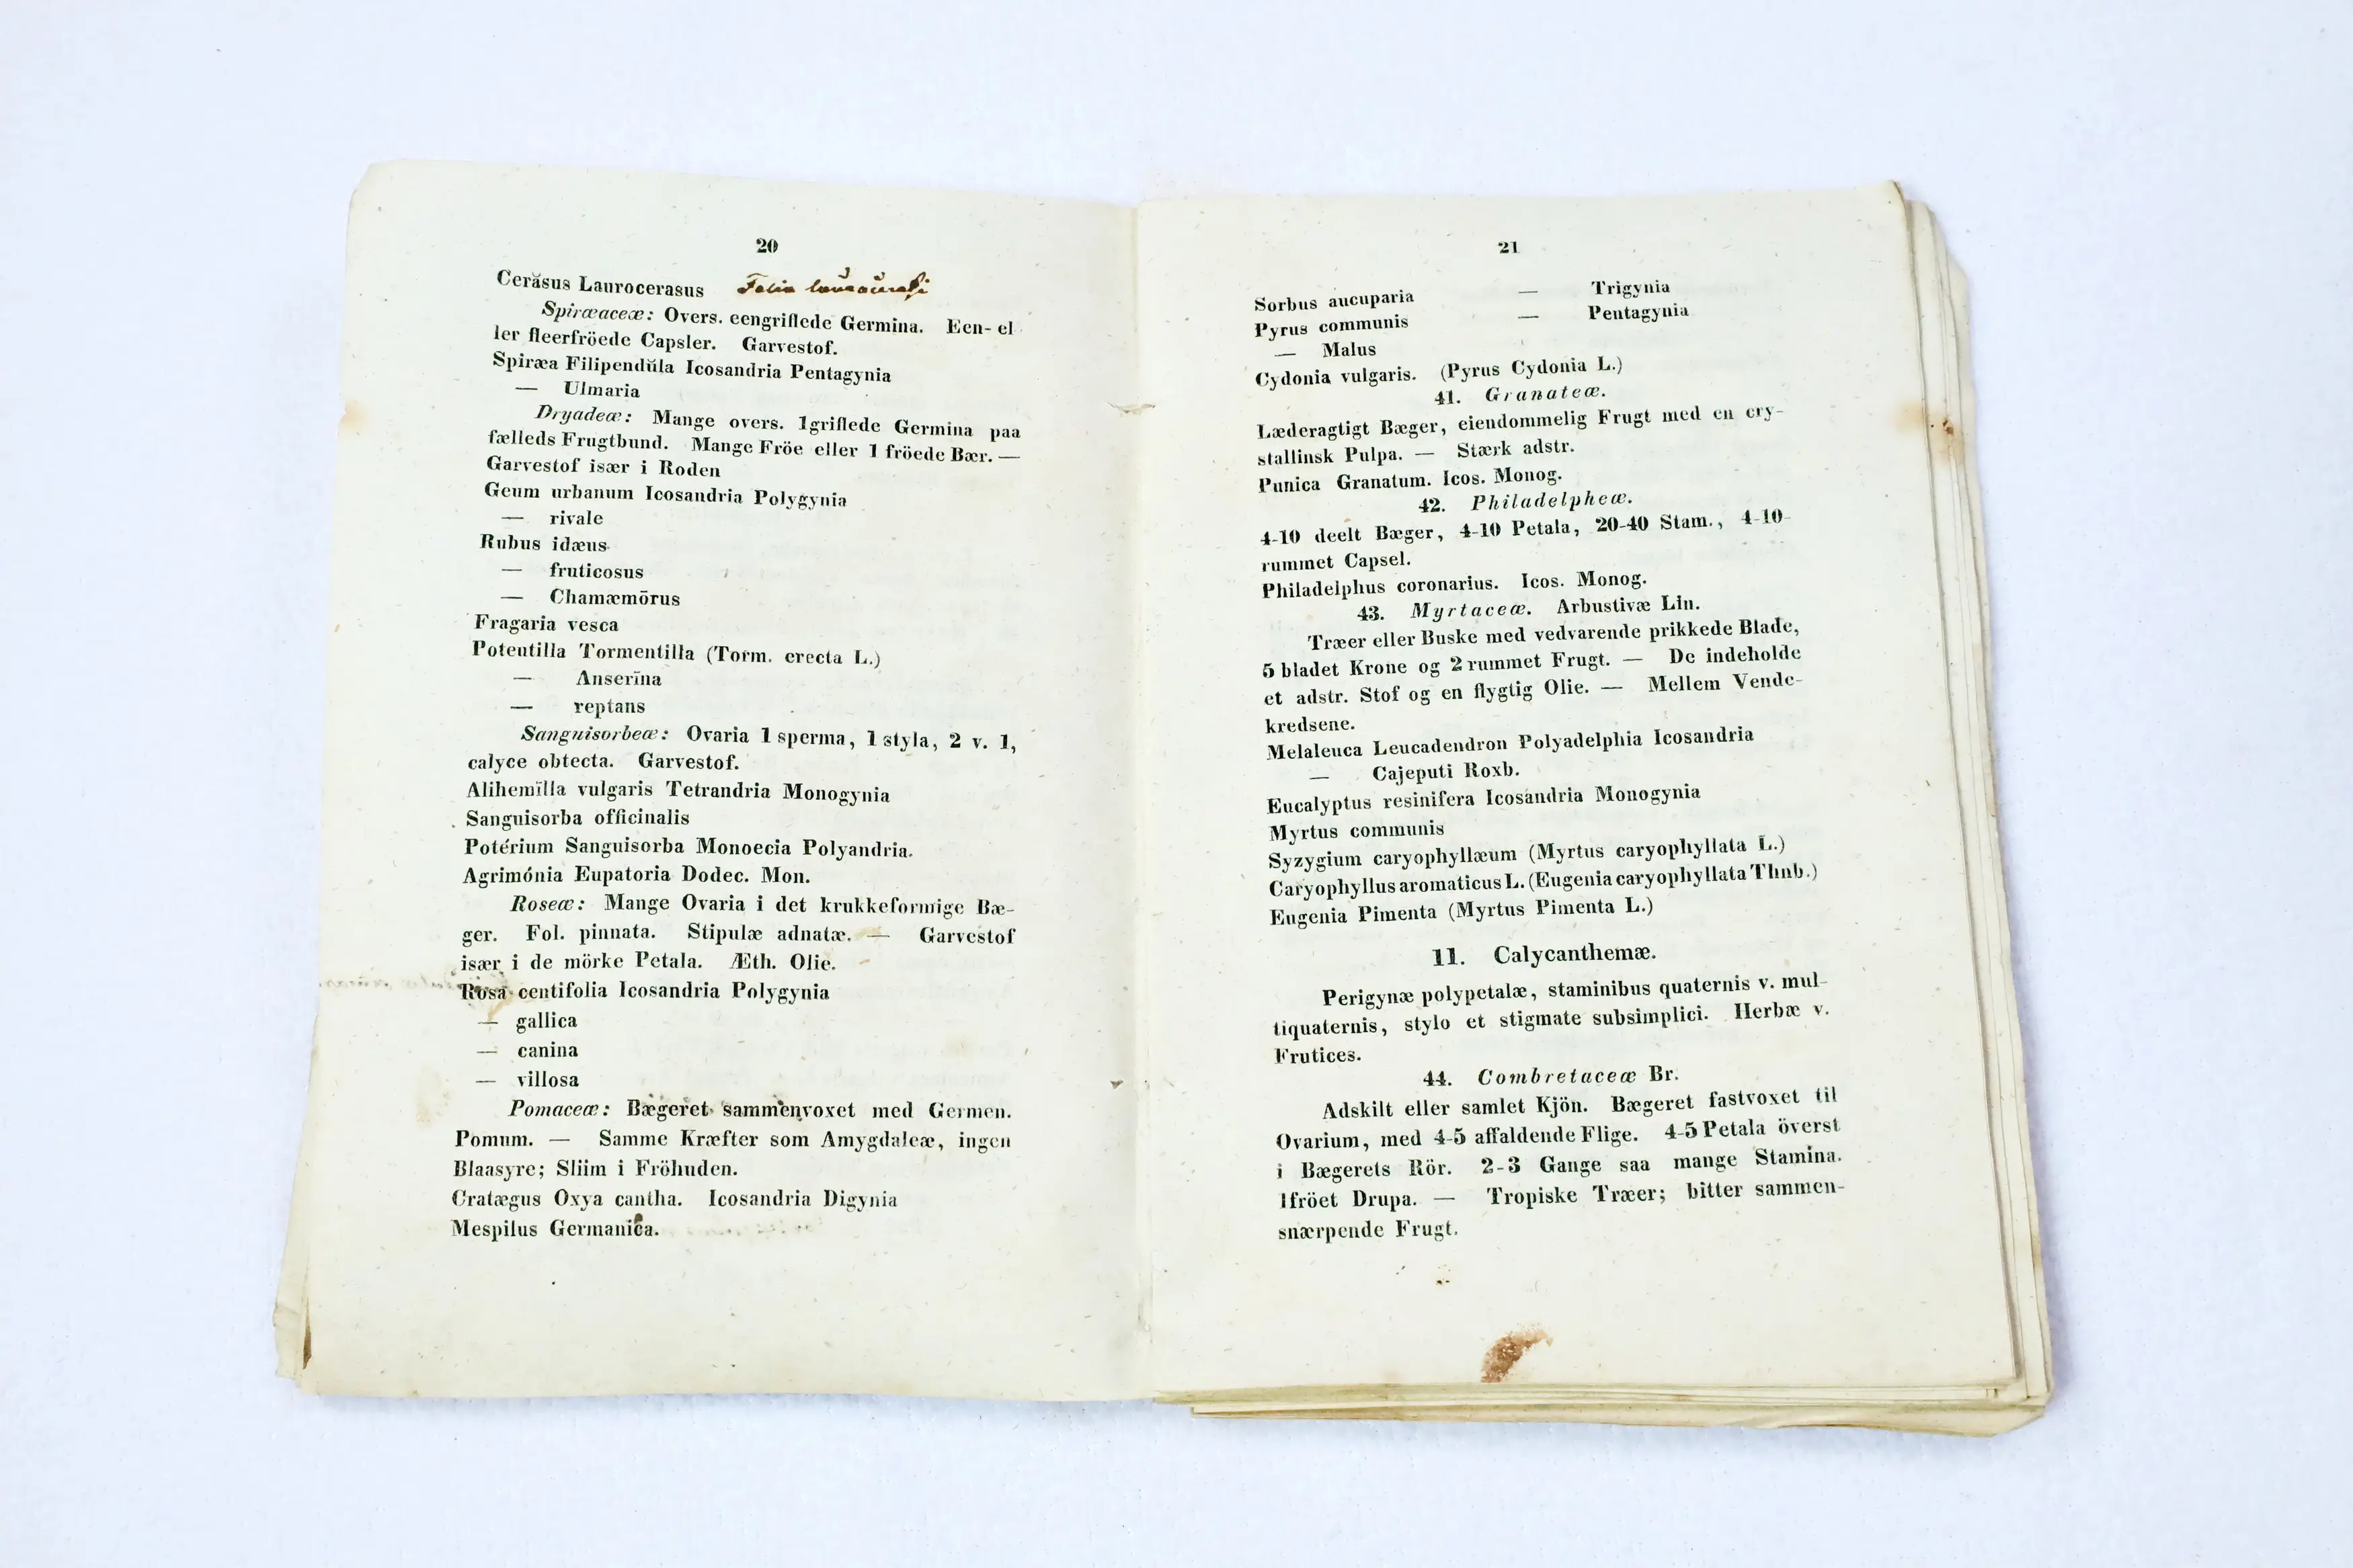 20
Cerăsus Laurocerasus Folia
Spiræaceæ: Overs. eengriflede Germina. Een- el
ler fleerfröede Capsler. Garvestof.
Spiræa Filipendŭla Icosandria Pentagynia
— Ulmaria
Dryadeæ: Mange overs. 1griflede Germina paa
fælleds Frugtbund. Mange Fröe eller 1 fröede Bær. —
Garvestof især i Roden
Geum urbanum Icosandria Polygynia
— rivale
Rubus idæus
— fruticosus
— Chamæmōrus
Fragaria vesca
Potentilla Tormentilla (Torm. erecta L.)
— Anserīna
— reptans
Sanguisorbeæ: Ovaria 1 sperma, 1 styla, 2 v. 1,
calyce obtecta. Garvestof.
Alihemīlla vulgaris Tetrandria Monogynia
Sanguisorba officinalis
Potérium Sanguisorba Monoecia Polyandria.
Agrimónia Eupatoria Dodec. Mon.
Roseæ: Mange Ovaria i det krukkeformige Bæ-
ger. Fol. pinnata. Stipulæ adnatæ. — Garvestof
især i de mörke Petala. Æth. Olie.
Rosa centifolia Icosandria Polygynia
— gallica
— canina
— villosa
Pomaceæ: Bægeret sammenvoxet med Germen.
Pomum. — Samme Kræfter som Amygdaleæ, ingen
Blaasyre; Sliim i Fröhuden.
Cratægus Oxya cantha. Icosandria Digynia
Mespilus Germanica.
21
Sorbus aucuparia — Trigynia
Pyrus communis — Pentagynia
— Malus
Cydonia vulgaris. (Pyrus Cydonia L.)
41. Granateæ.
Læderagtigt Bæger, eiendommelig Frugt med en cry-
stallinsk Pulpa. — Stærk adstr.
Punica Granatum. Icos. Monog.
42. Philadelpheæ.
4-10 deelt Bæger, 4-10 Petala, 20-40 Stam., 4-10-
rummet Capsel.
Philadelphus coronarius. Icos. Monog.
43. Myrtaceæ. Arbustivæ Lin.
Træer eller Buske med vedvarende prikkede Blade,
5 bladet Krone og 2 rummet Frugt. — De indeholde
et adstr. Stof og en flygtig Olie. — Mellem Vende-
kredsene.
Melaleuca Leucadendron Polyadelphia Icosandria
— Cajeputi Roxb.
Eucalyptus resinifera Icosandria Monogynia
Myrtus communis
Syzygium caryophyllæum (Myrtus caryophyllata L.)
Caryophyllus aromaticus L. (Eugenia caryophyllata Thnb.)
Eugenia Pimenta (Myrtus Pimenta L.)
11. Calycanthemæ.
Perigynæ polypetalæ, staminibus quaternis v. mul-
tiquaternis, stylo et stigmate subsimplici. Herbæ v.
Frutices.
44. Combretaceæ Br.
Adskilt eller samlet Kjön. Bægeret fastvoxet til
Ovarium, med 4-5 affaldende Flige. 4-5 Petala överst
i Bægerets Rör. 2-3 Gange saa mange Stamina.
1fröet Drupa. — Tropiske Træer; bitter sammen-
snærpende Frugt.